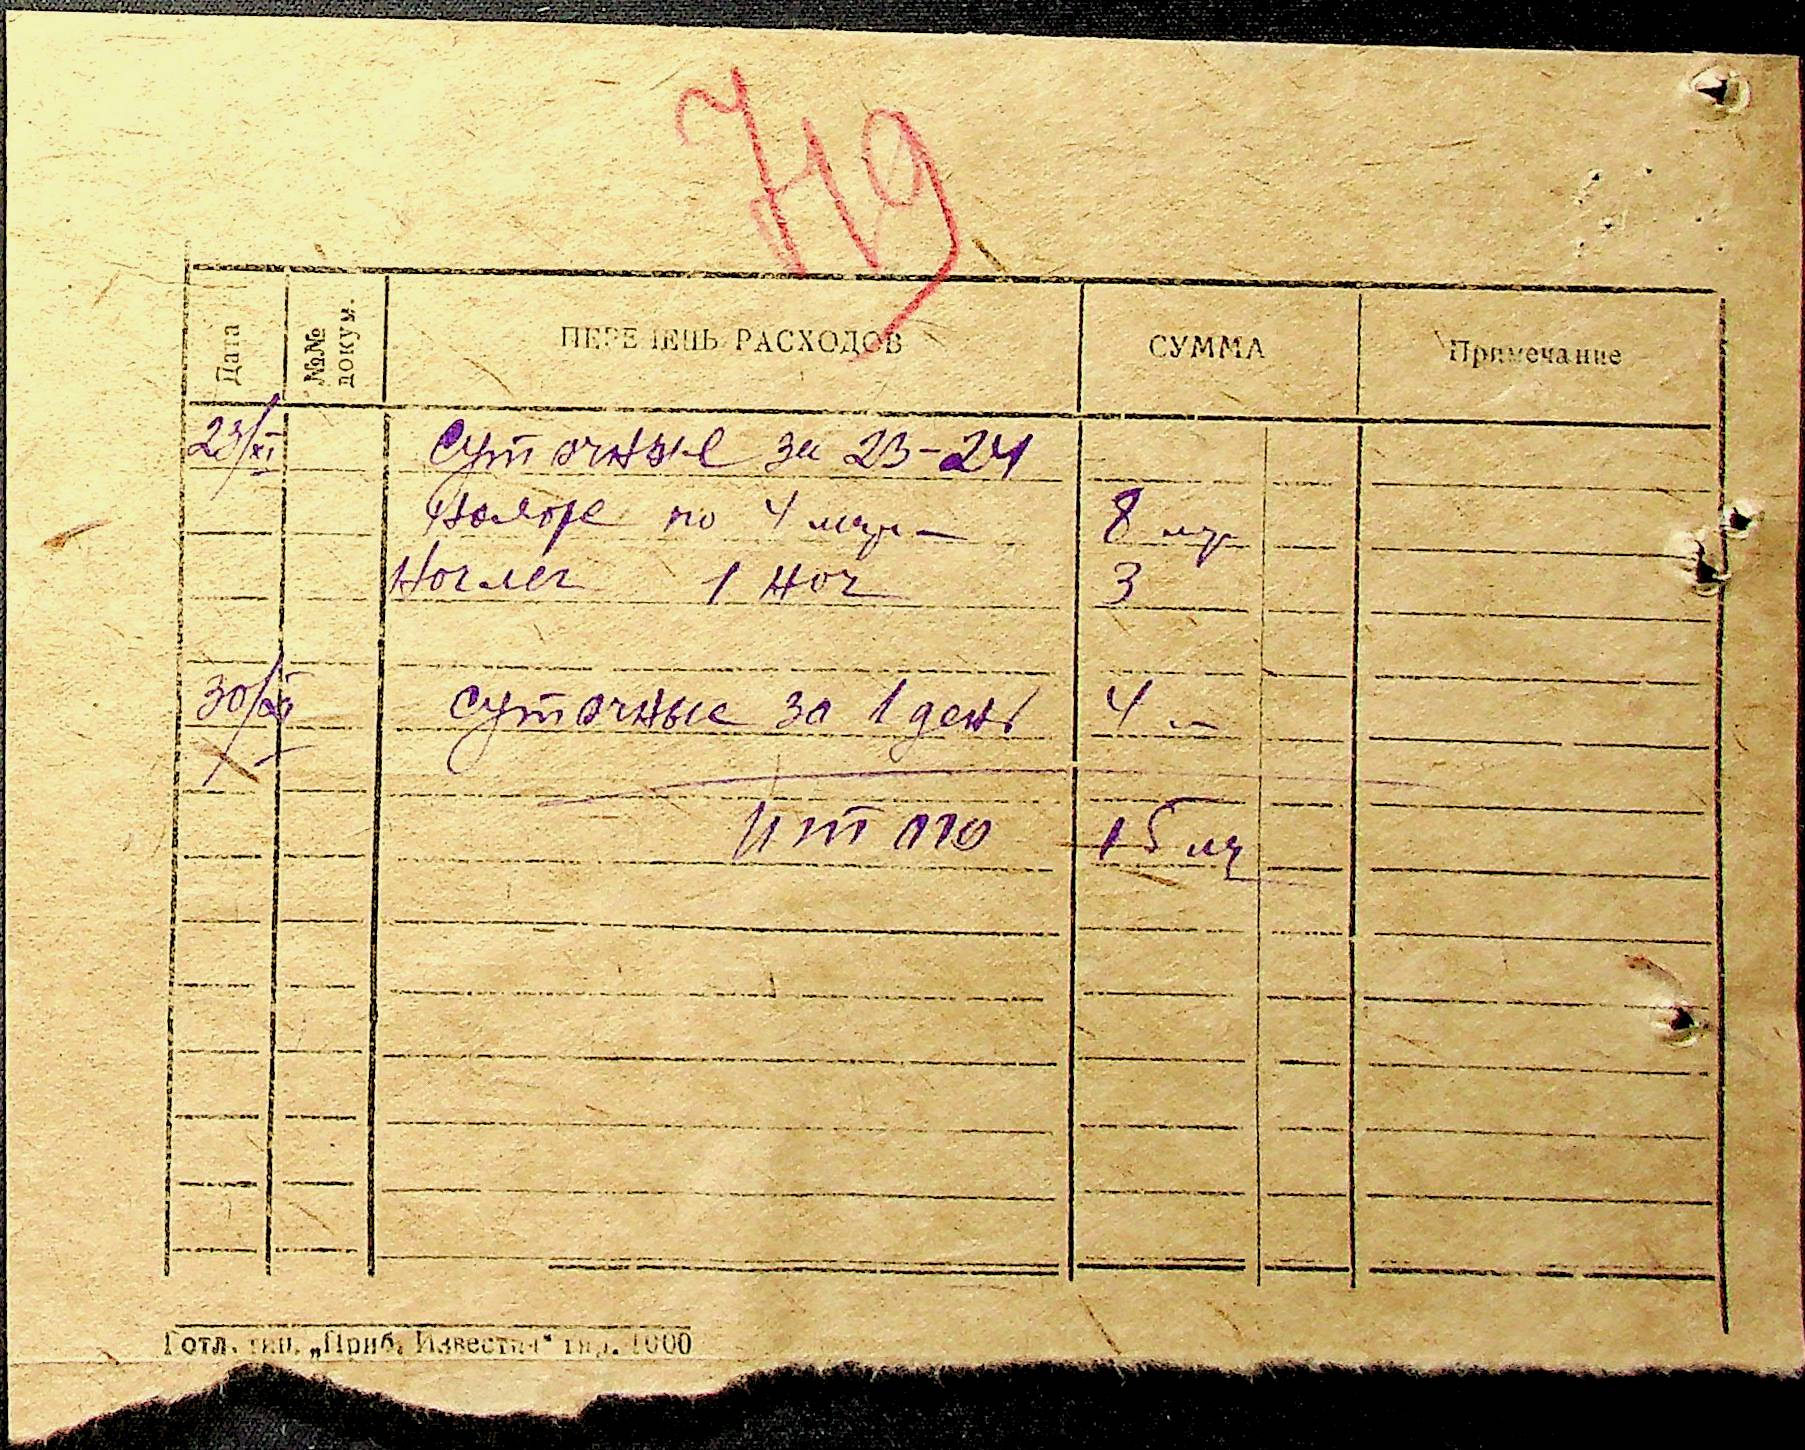 Н9
Дата №№ докум. ПЕРЕЧЕНЬ РАСХОДОВ СУММА Примечание
23/XI Суточные за 23-24
Ноября по 4 8
Ночлег 1 ноч 3
30/XI суточные за 1 день 4
Итого 15
Готл. тип. „Приб. Известия“ тир. 1000